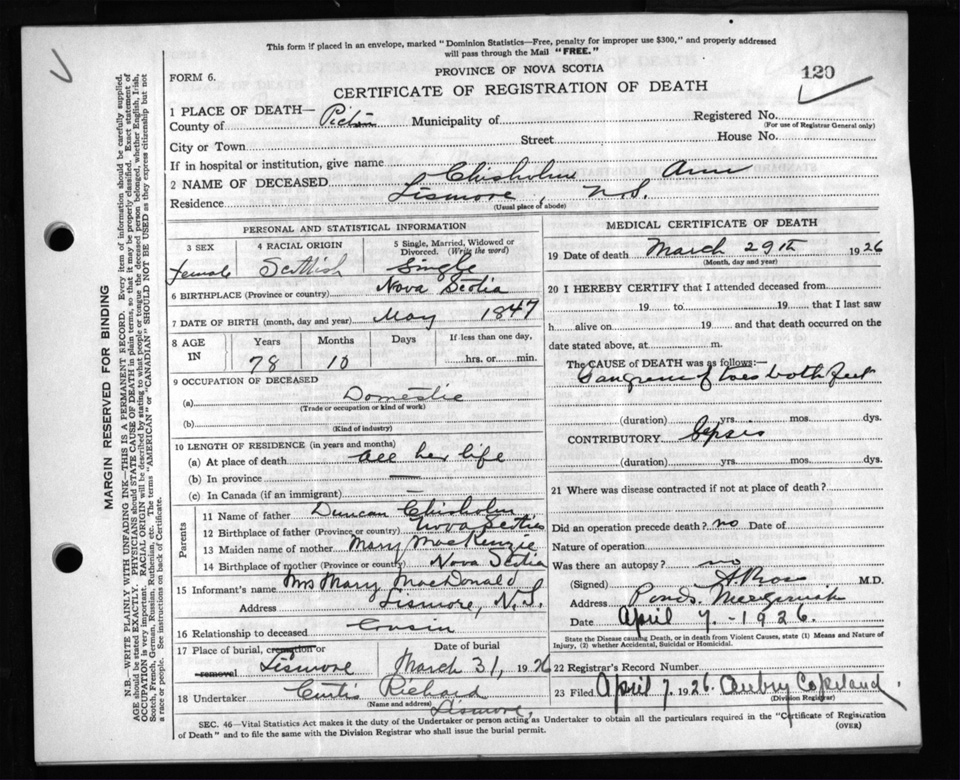 This form if placed in an envelope, marked "Dominion Statistics—Free, penalty for improper use $300," and properly addressed
will pass through the Mail "FREE."
FORM 6.
PROVINCE OF NOVA SCOTIA
120
CERTIFICATE OF REGISTRATION OF DEATH
1 PLACE OF DEATH—
County of Pictou Municipality of Registered No.
(For use of Registrar General only)
City or Town Street House No.
If in hospital or institution, give name
2 NAME OF DECEASED Chisholm Ann
Residence Lismore, N.S.
(Usual place of abode)
PERSONAL AND STATISTICAL INFORMATION
3 SEX 4 RACIAL ORIGIN 5 Single, Married, Widowed or Divorced. (Write the word)
Female Scottish Single
6 BIRTHPLACE (Province or country) Nova Scotia
7 DATE OF BIRTH (month, day and year) May 1847
8 AGE IN Years Months Days If less than one day,
78 10 hrs. or min.
9 OCCUPATION OF DECEASED
(a) Domestic
(Trade or occupation or kind of work)
(b)
(Kind of industry)
10 LENGTH OF RESIDENCE (in years and months)
(a) At place of death all her life
(b) In province —
(c) In Canada (if an immigrant) —
Parents
11 Name of father Duncan Chisholm
12 Birthplace of father (Province or country) Nova Scotia
13 Maiden name of mother Mary MacKenzie
14 Birthplace of mother (Province or country) Nova Scotia
15 Informant's name Mrs Mary MacDonald
Address Lismore, N.S.
16 Relationship to deceased Cousin
17 Place of burial, cremation or removal Date of burial
Lismore March 31, 1926
18 Undertaker Curtis Richard
(Name and address) Lismore,
MEDICAL CERTIFICATE OF DEATH
19 Date of death March 29th 1926
(Month, day and year)
20 I HEREBY CERTIFY that I attended deceased from
19 to 19 that I last saw
h alive on 19 and that death occurred on the
date stated above, at m.
The CAUSE OF DEATH was as follows:—
Gangrene of toes both feet
(duration) yrs. mos. dys.
CONTRIBUTORY Sepsis
(duration) yrs. mos. dys.
21 Where was disease contracted if not at place of death?
Did an operation precede death? no Date of
Nature of operation
Was there an autopsy? no
(Signed) M.D.
Address Ponds
Date April 7.-1926.
State the Disease causing Death, or in death from Violent Causes, state (1) Means and Nature of
Injury, (2) whether Accidental, Suicidal or Homicidal.
22 Registrar's Record Number
23 Filed April 7, 1926. Aubry Copeland.
(Division Registrar)
SEC. 46—Vital Statistics Act makes it the duty of the Undertaker or person acting as Undertaker to obtain all the particulars required in the "Certificate of Registration
of Death" and to file the same with the Division Registrar who shall issue the burial permit.
(OVER)
MARGIN RESERVED FOR BINDING
N.B.—WRITE PLAINLY WITH UNFADING INK—THIS IS A PERMANENT RECORD. Every item of information should be carefully supplied.
AGE should be stated EXACTLY. PHYSICIANS should STATE CAUSE OF DEATH in plain terms, so that it may be properly classified. Exact statement of
OCCUPATION is very important. RACIAL ORIGIN will be described by stating to what people or tongue the deceased person belonged, whether English, Irish,
Scotch, French, German, Russian, Ruthenian, etc. The terms "AMERICAN" or "CANADIAN" SHOULD NOT BE USED as they express citizenship but not
a race or people. See instructions on back of Certificate.